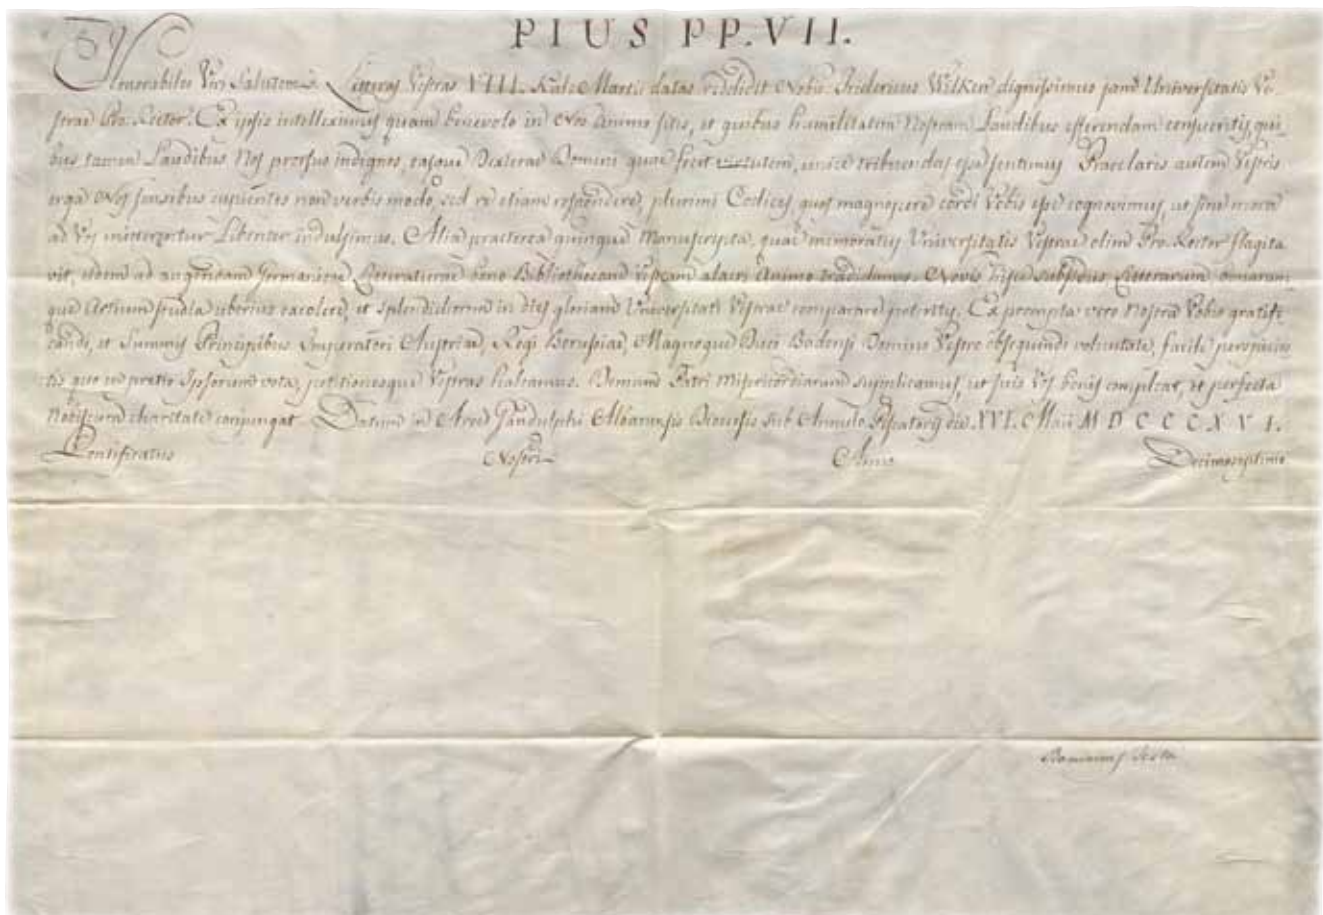 PIUS PP. VII.
Honorabiles Viri Salutem. Litteras Vestras VIII. Kal. Martii datas reddidit Nobis Fridericus Wilken dignissimus jam Universitatis Ve-
strae Pro-Rector. Ex ipsis intelleximus quam benevolo in Nos Animo sitis, et quibus humilitatem Nostram Laudibus efferendam censueritis, qui-
bus tamen Laudibus Nos prorsus indignos, easque Dexterae Domini quae fecit virtutem, unice tribuendas esse sentimus. Praeclaris autem Vestris
erga Nos sensibus cupientes non verbis modo, sed re etiam respondere, plurimi Codices, quos magnopere cordi Vobis esse cognovimus, ut sine mora
ad Vos mitterentur Libenter indulsimus. Alia praeterea quinque Manuscripta, quae memoratus Universitatis Vestrae olim Pro-Rector flagita
vit, eidem ad augendam Germanicae Litteraturae bono Bibliothecam Vestram alacri Animo tradidimus. Novis hisce subsidiis Litterarum omnium
que Artium studia uberius excolere, et splendidiorem in dies gloriam Universitati Vestrae comparare poteritis. Ex prompta vero Nostra Vobis gratifi
candi, et Summis Principibus Imperatori Austriae, Regi Borussiae, Magnoque Duci Badensi Domino Vestro obsequendi voluntate, facile perspicia
tis quo in pretio Ipsorum vota, petitionesque Vestras habeamus. Demum Patri Misericordiarum supplicamus, ut suis Vos bonis compleat, et perfecta
Nobiscum charitate conjungat. Datum in Arce Gandulphi Albanensis Diocesis sub Annulo Piscatoris die XVI. Maii MDCCCXVI.
Pontificatus Nostri Anno Decimoseptimo